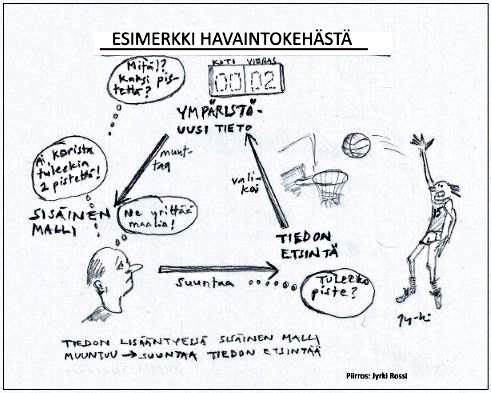 ESIMERKKI HAVAINTOKEHÄSTÄ
Mitä!?
Kaksi pis-
tettä?
KOTI VIERAS
00 02
YMPÄRISTÖ-
UUSI TIETO
Ai, korista
tuleekin
2 pistettä!
muut-
taa
vali-
koi
SISÄINEN
MALLI
Ne yrittää
maalia!
TIEDON
ETSINTÄ
suuntaa
Tuleeko
piste?
15
Jy-ki
TIEDON LISÄÄNTYESSÄ SISÄINEN MALLI
MUUNTUU → SUUNTAA TIEDON ETSINTÄÄ
Piirros: Jyrki Rossi